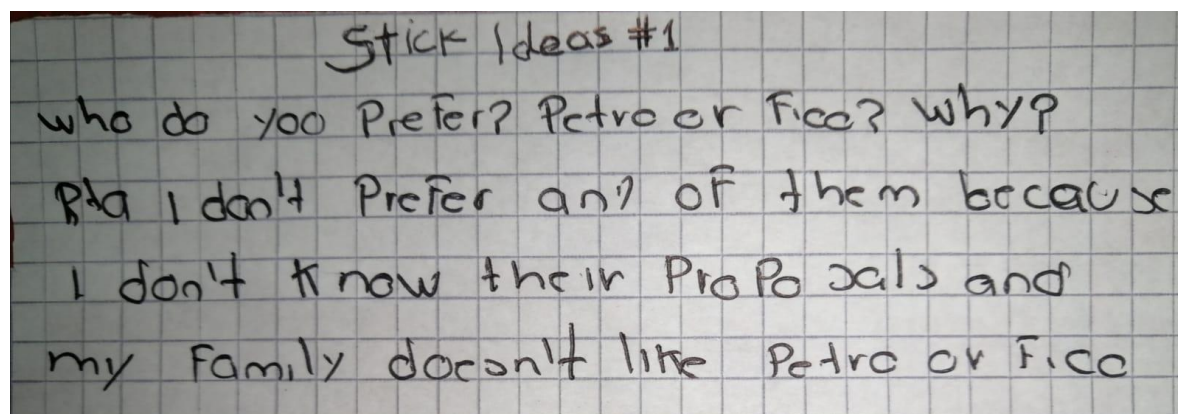 Stick Ideas #1
who do you Prefer? Petro or Fico? Why?
Rta I don't Prefer any of them because
I don't know their ProPosals and
my Family doesn't like Petro or Fico